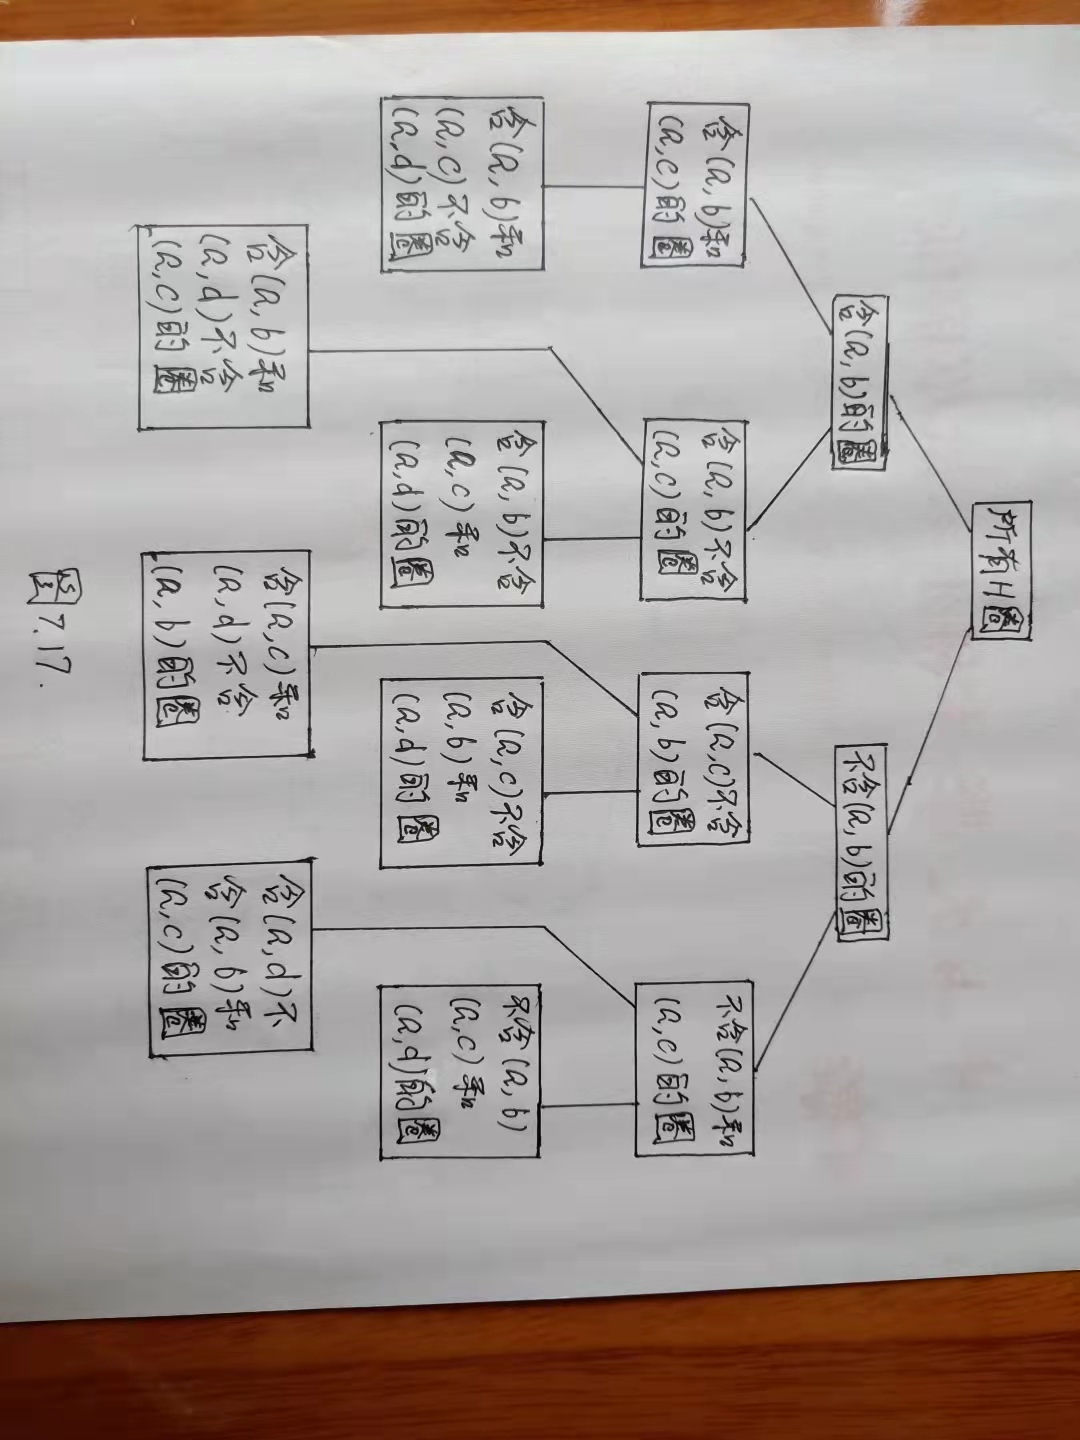 所有H圈
含(a,b)的圈
不含(a,b)的圈
含(a,b)和
(a,c)的圈
含(a,b)不含
(a,c)的圈
含(a,c)不含
(a,b)的圈
不含(a,b)和
(a,c)的圈
含(a,b)和
(a,c)不含
(a,d)的圈
含(a,b)不含
(a,c)和
(a,d)的圈
含(a,c)不含
(a,b)和
(a,d)的圈
不含(a,b)
(a,c)和
(a,d)的圈
含(a,b)和
(a,d)不含
(a,c)的圈
含(a,c)和
(a,d)不含
(a,b)的圈
含(a,d)不
含(a,b)和
(a,c)的圈
图7.17.